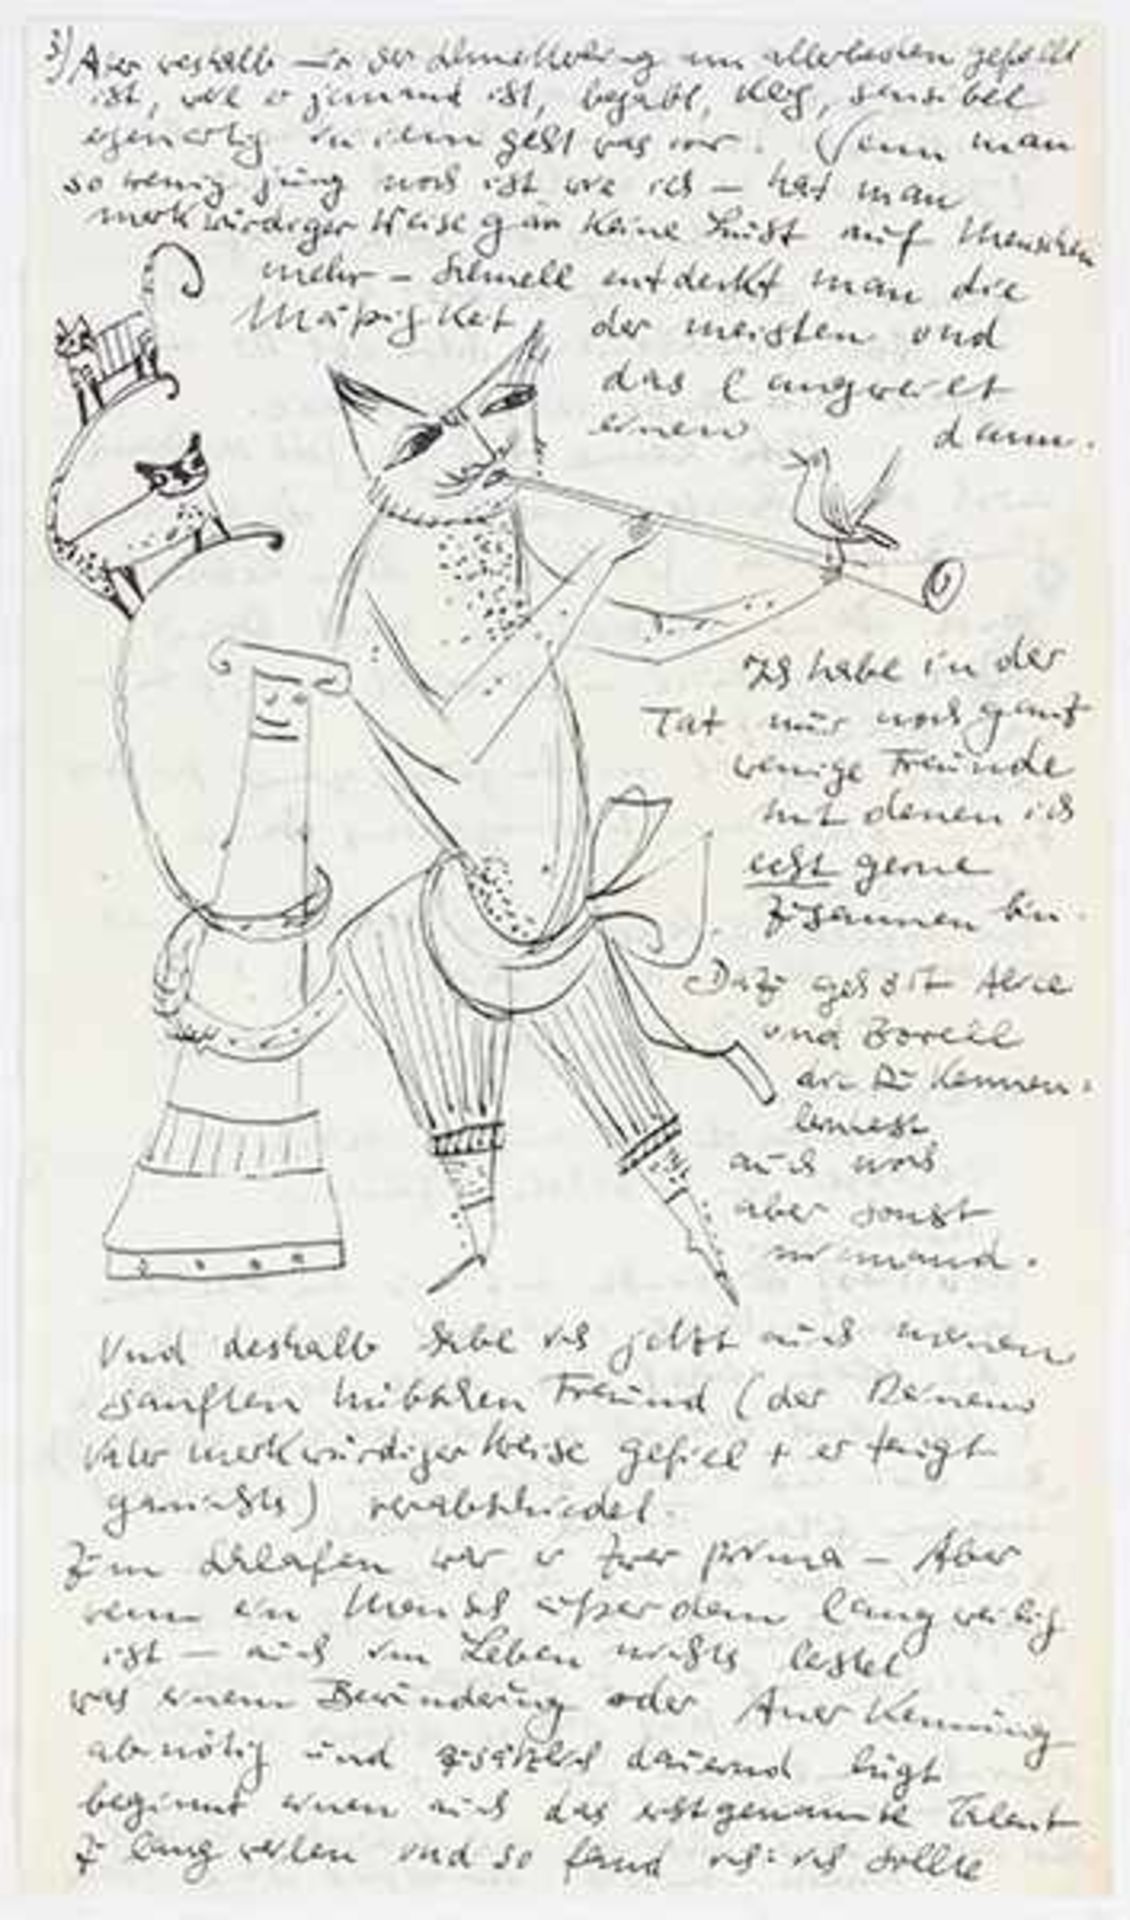 3) Aber weshalb der am allerbesten gefällt
ist, weil er jemand ist, begabt, klug, sensibel
eigenartig in ihm geht was vor. Wenn man
so wenig jung noch ist wie ich – hat man
merkwürdiger Weise gar keine Lust auf Menschen
mehr – schnell entdeckt man die
Mäßigkeit der meisten und
das langweilt
einen dann.
Ich habe in der
Tat nur noch ganz
wenige Freunde
mit denen ich
echt gerne
zusammen bin.
Dazu gehört
und
die Du kennen-
lernest
auch noch
aber sonst
niemand.
Und deshalb habe ich jetzt auch meinen
sanften hübschen Freund (der Deinem
merkwürdiger Weise gefiel + er taugt
garnichts) verabschiedet.
Zum Schlafen war er zwar prima – Aber
wenn ein Mensch außerdem langweilig
ist – auch im Leben nichts leistet
was einem Bewunderung oder Anerkennung
abnötig und zusätzlich dauernd lügt
beginnt einen auch das erstgenannte Talent
zu langweilen und so fand ich: ich sollte